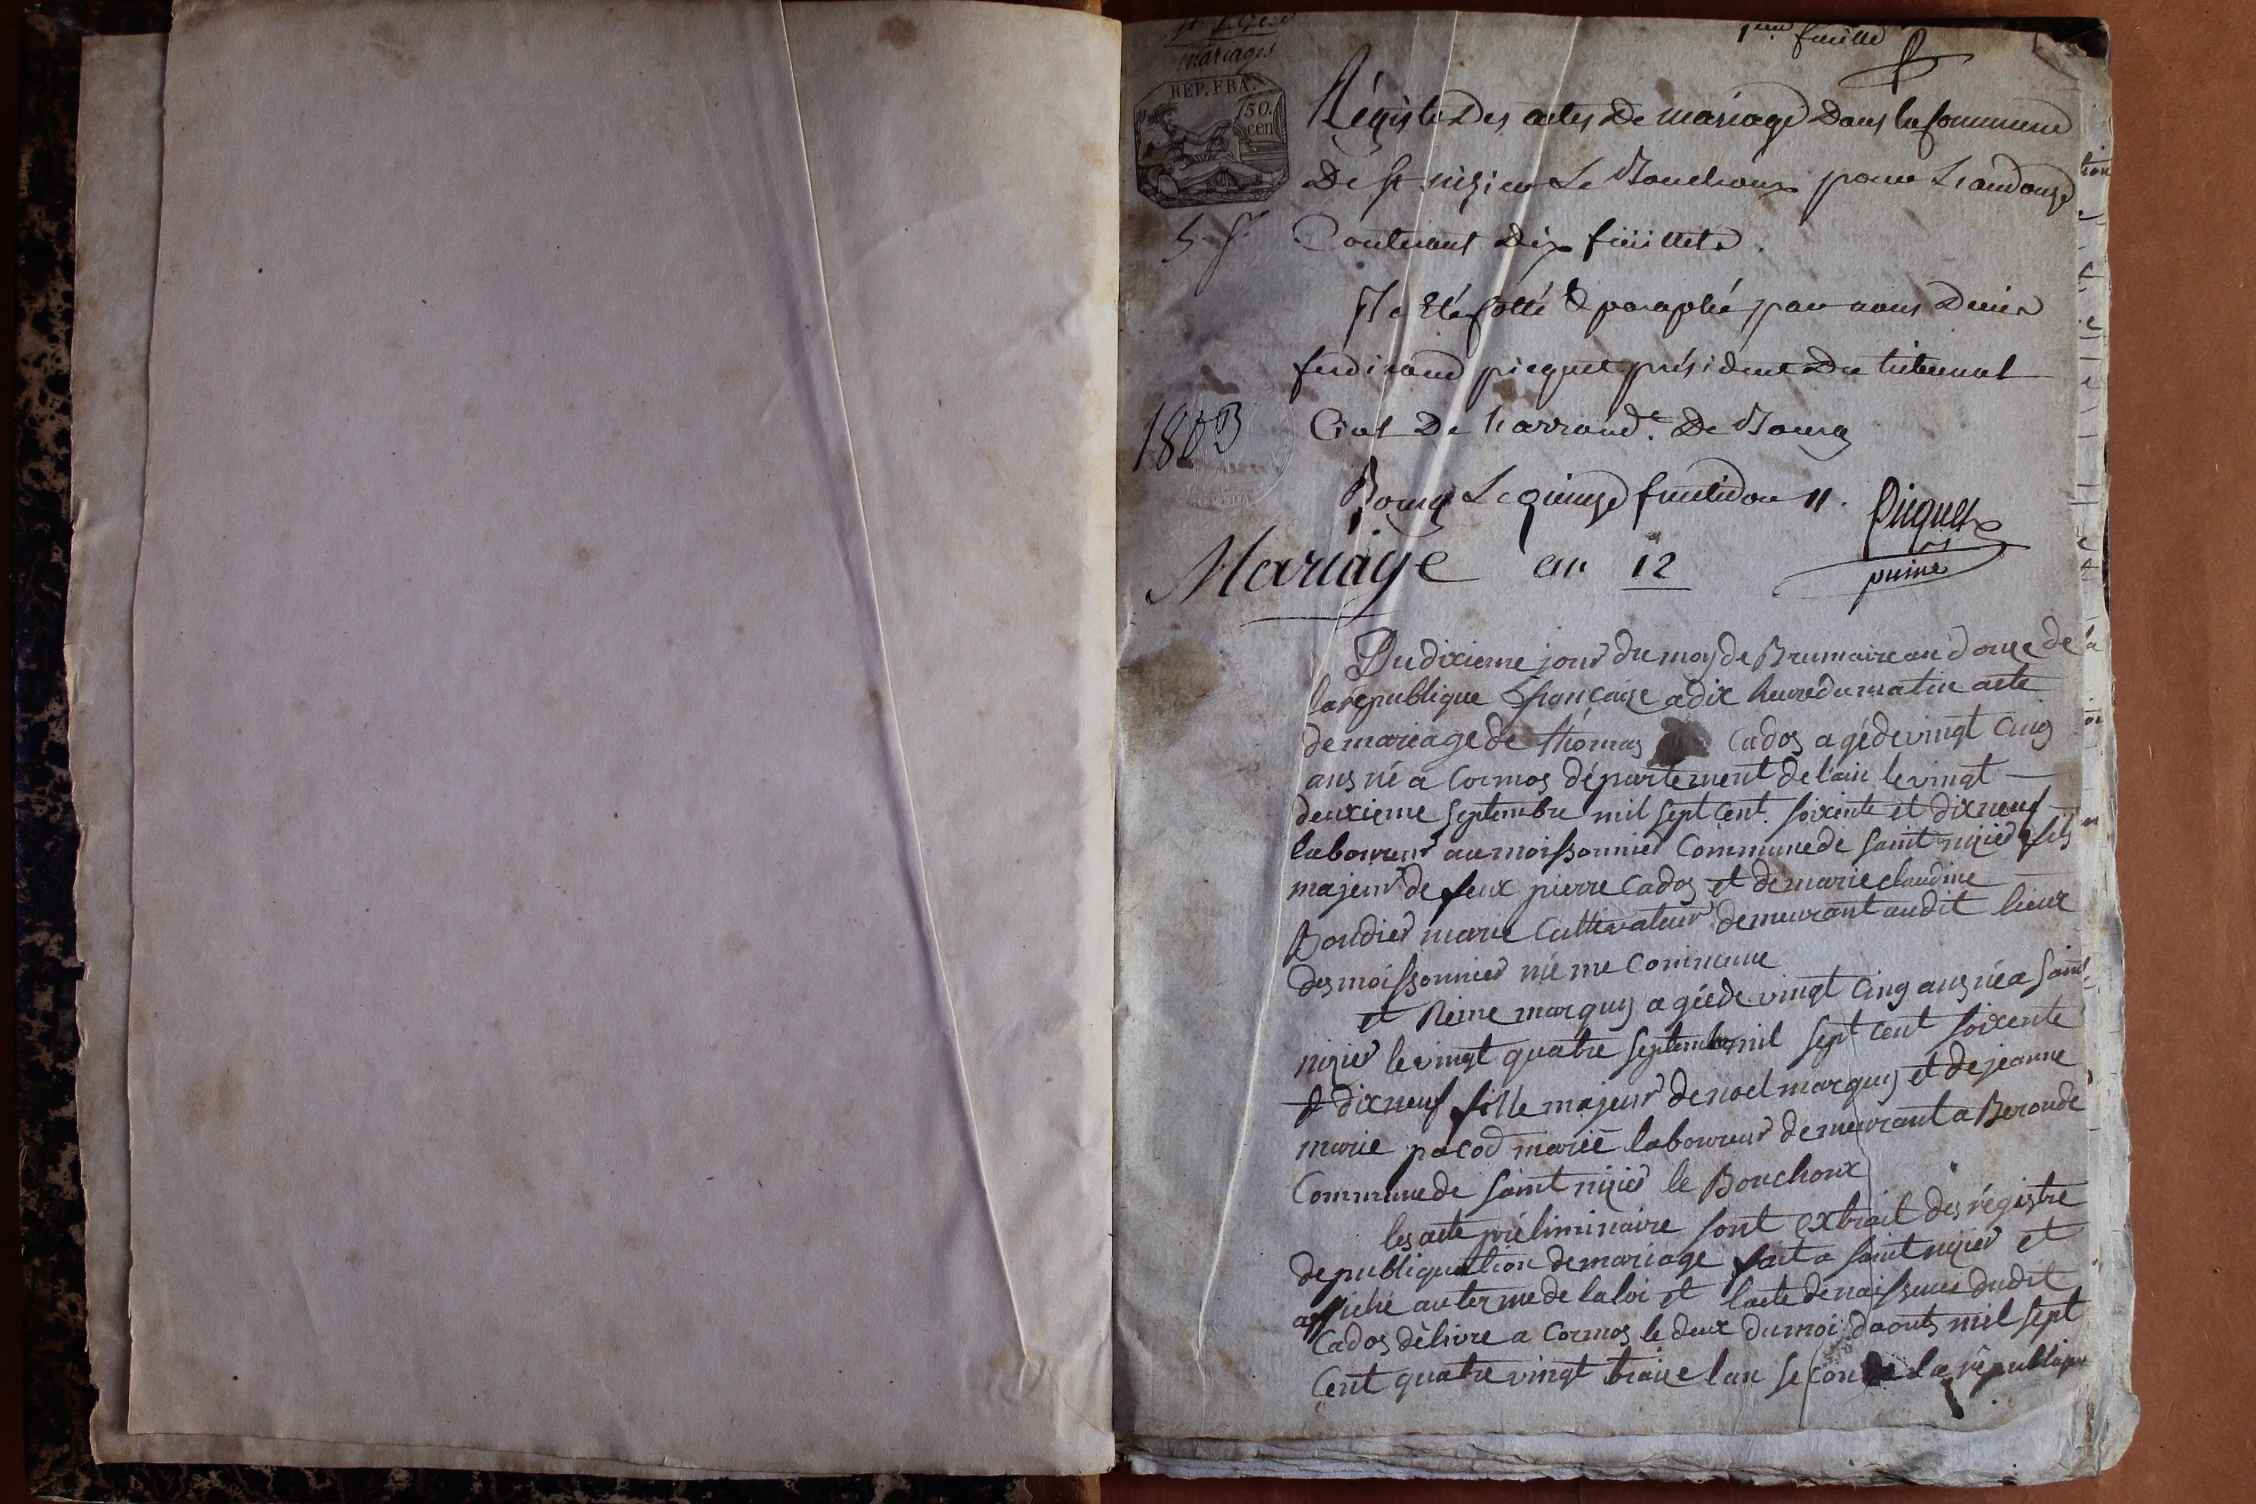 1ere feuille
mariages
REP. FRA.
50.
cen
Régistre Des actes De mariage Dans la Commune
De st nizier Le Bouchoux pour L'an douze
Contenant Dix feuillets.
Il a Eté Cotté & paraphé par nous Denis
ferdinand picquet président Du tribunal
Civil De L'arrond.t De Bourg
1803
Bourg Le quinze fructidor 11.
Picquet
puiné
Mariage an 12
Du dixieme jour du moy de Brumaire an douze de
la republique française a dix heure du matin acte
de mariage de thomas Cados agé de vingt cinq
ans né a Cormos département de l'ain le vingt
deuxieme septembre mil sept cent soixente et dix neuf
laboureur au moissonnier Commune de saint nizier fils
majeur de feux pierre Cados et de marie claudine
Boudier marié Cultivateur demeurant audit lieux
des moissonnier même Commune
et Reine marquis agée de vingt cinq ans née a saint
nizier le vingt quatre septembre mil sept cent soixente
& dix neuf fille majeur de noel marquis et de jeanne
marie pacod marié laboureur demeurant a Beronde
Commune de saint nizier le Bouchoux
les acte préliminaire sont extrait des régistre
de publiquation de mariage fait a saint nizier et
affiché au terme de la loi et l'acte de naissence dudit
Cados délivre a Cormos le deux du moi daouts mil sept
Cent quatre vingt traize l'an second de la république